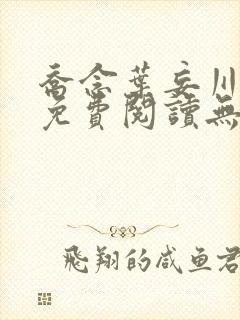 喬念葉妄川
免費閱讀無
飛翔的咸鱼君